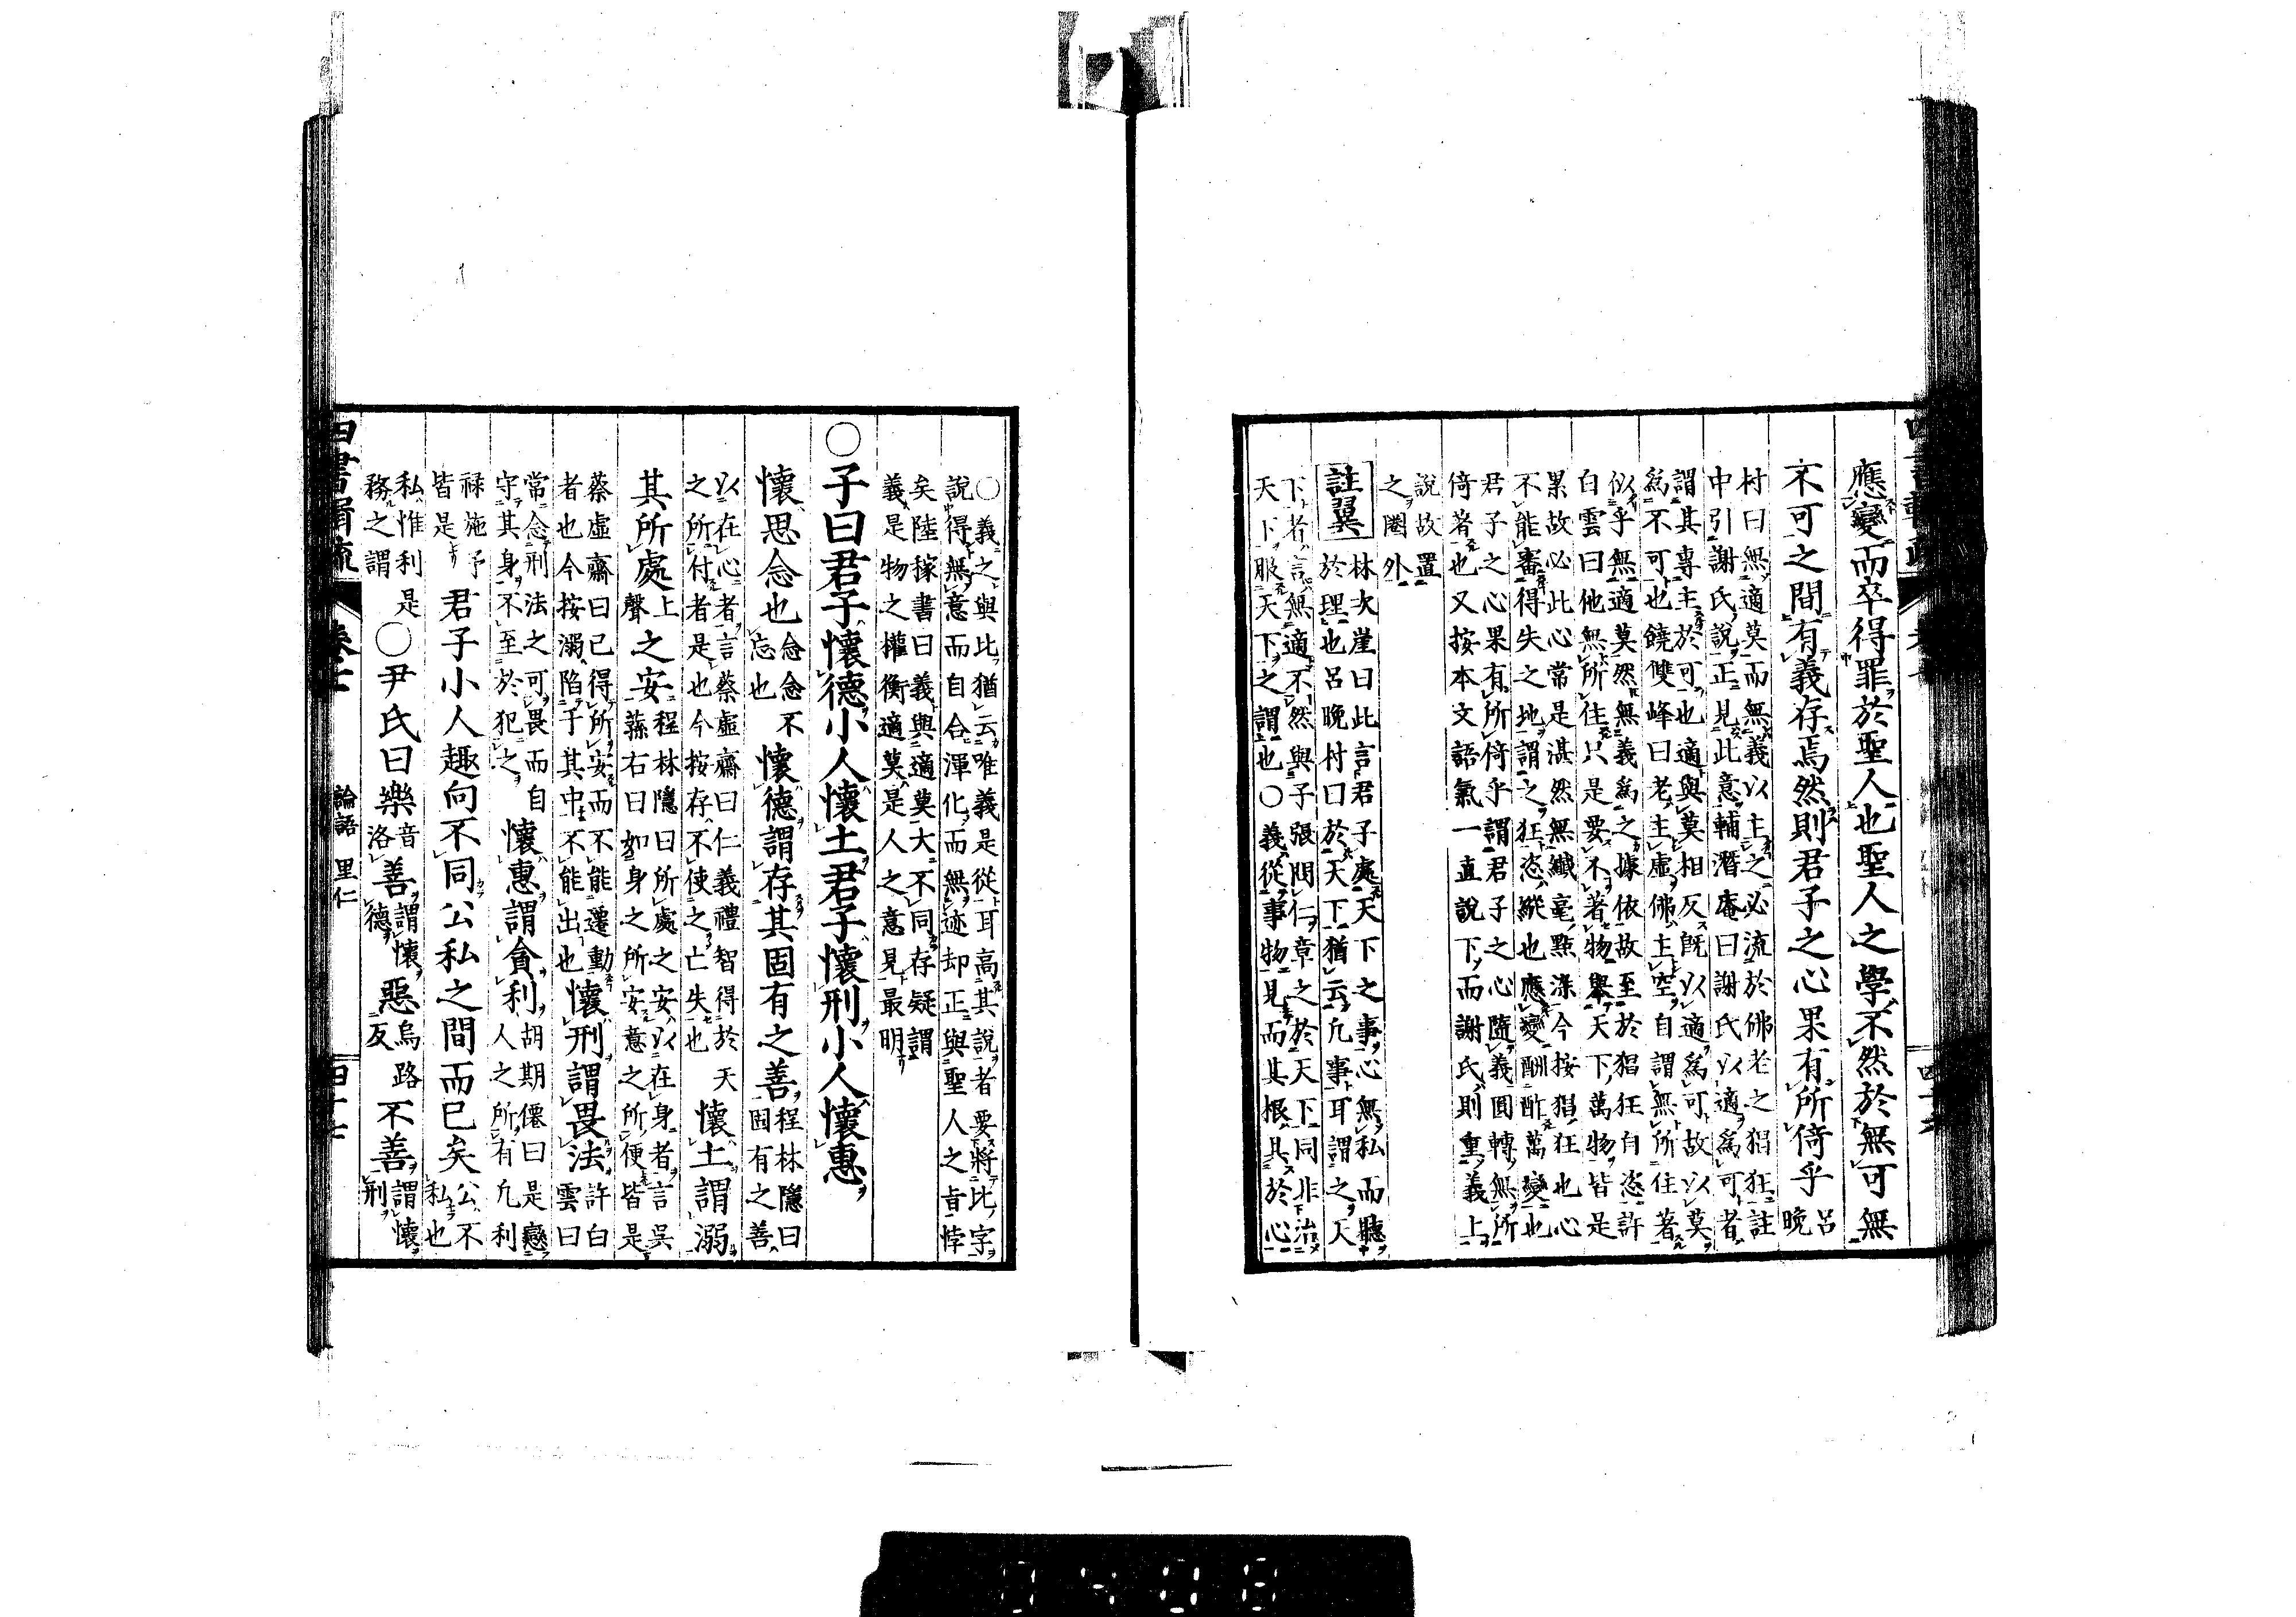 應變而卒得罪於聖人也聖人之學不然於無可無
不可之間有義存焉然則君子之心果有所倚乎呂晚
村曰無適莫而無義以主之必流於佛老之猖狂註
中引謝氏說正見此意輔潛庵曰謝氏以適爲可者
謂其專主於可也適與莫相反旣以適爲可故以莫
爲不可也饒雙峰曰老主虛佛主空自謂無所住著
似乎無適莫然無義爲之據依故至於猖狂自恣許
白雲曰他無所住只是要不著物舉天下萬物皆是
累故必此心常是湛然無纖毫點滓今按猖狂也心
不能審得失之地謂之狂恣縱也應變酬酢萬變也
君子之心果有所倚乎謂君子之心隨義圓轉無所
倚著也又按本文語氣一直說下而謝氏則重義上
說故置
之圈外
註翼
林次崖曰此言君子處天下之事心無私而聽
於理也呂晚村曰於天下猶云凡事耳謂之天
下者言無適不然與子張問仁章之於天下同非治
天下服天下之謂也○義從事物見而其根具於心
○義之與比猶云唯義是從耳高其說者要將比字
說得無意而自合渾化而無迹却正與聖人之旨悖
矣陸稼書曰義與適莫大不同存疑謂
義是物之權衡適莫是人之意見最明
○子曰君子懷德小人懷土君子懷刑小人懷惠
懷思念也念念不忘也懷德謂存其固有之善程林隱曰固有之善
以在心者言蔡虛齋曰仁義禮智得於天
之所付者是也今按存不使之亡失也
懷土謂溺
其所處上聲之安程林隱曰所處之安以在身者言吳蓀右曰如身之所安意之所便皆是
蔡虛齋曰已得所安而不能遷動
者也今按溺陷于其中不能出也
懷刑謂畏法許白雲曰
常念刑法之可畏而自
守其身不至於犯之
懷惠謂貪利胡期僊曰是戀人之所有凡利
祿施予
皆是
君子小人趣向不同公私之間而已矣公不私也
私惟利是
務之謂
○尹氏曰樂音洛善謂懷德惡烏路反不善謂懷刑
論語 里仁